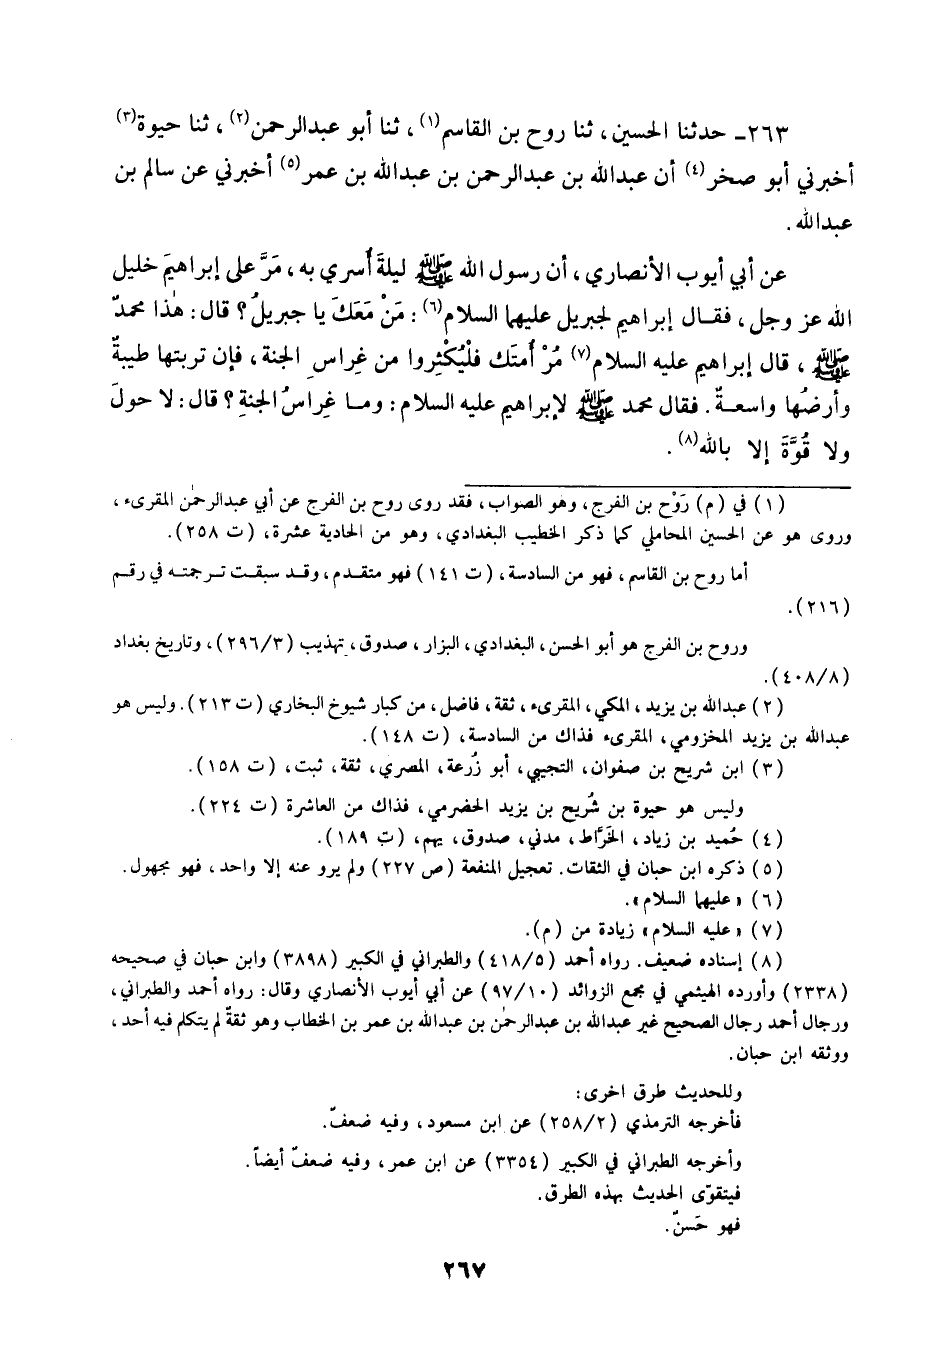 ٢٦٣ـ حدثنا الحسين، ثنا روح بن القاسم(١)، ثنا أبو عبدالرحمن(٢)، ثنا حيوة(٣)
أخبرني أبو صخر(٤) أن عبدالله بن عبدالرحمن بن عبدالله بن عمر(٥) أخبرني عن سالم بن
عبدالله.
عن أبي أيوب الأنصاري، أن رسول الله ﷺ ليلةَ أُسري به، مَرَّ على إبراهيمَ خليل
الله عز وجل، فقال إبراهيم لجبريل عليهما السلام(٦): مَنْ مَعَكَ يا جبريلُ؟ قال: هٰذا محمدٌ
ﷺ، قال إبراهيم عليه السلام(٧) مُرْ أمتَك فلْيُكْثِروا من غِراسِ الجنة، فإن تربتها طيبةٌ
وأرضُها واسعةٌ. فقال محمد ﷺ لإبراهيم عليه السلام: وما غِراسُ الجنةِ؟ قال: لا حولَ
ولا قُوَّةَ إلا بالله(٨).
(١) في (م) رَوْح بن الفرج، وهو الصواب، فقد روى روح بن الفرج عن أبي عبدالرحمٰن المقرىء،
وروى هو عن الحسين المحاملي كما ذكر الخطيب البغدادي، وهو من الحادية عشرة، (ت ٢٥٨).
أما روح بن القاسم، فهو من السادسة، (ت ١٤١) فهو متقدم، وقد سبقت ترجمته في رقم
(٢١٦).
وروح بن الفرج هو أبو الحسن، البغدادي، البزار، صدوق، تهذيب (٢٩٦/٣)، وتاريخ بغداد
(٤٠٨/٨).
(٢) عبدالله بن يزيد، المكي، المقرىء، ثقة، فاضل، من كبار شيوخ البخاري (ت ٢١٣). وليس هو
عبدالله بن يزيد المخزومي، المقرىء فذاك من السادسة، (ت ١٤٨).
(٣) ابن شريح بن صفوان، التجيبي، أبو زُرعة، المصري، ثقة، ثبت، (ت ١٥٨).
وليس هو حيوة بن شُريح بن يزيد الحضرمي، فذاك من العاشرة (ت ٢٢٤).
(٤) حُميد بن زياد، الخَرَّاط، مدني، صدوق، يهم، (ت ١٨٩).
(٥) ذكره ابن حبان في الثقات. تعجيل المنفعة (ص ٢٢٧) ولم يرو عنه إلا واحد، فهو مجهول.
(٦) «عليهما السلام».
(٧) «عليه السلام» زيادة من (م).
(٨) إسناده ضعيف. رواه أحمد (٤١٨/٥) والطبراني في الكبير (٣٨٩٨) وابن حبان في صحيحه
(٢٣٣٨) وأورده الهيثمي في مجمع الزوائد (٩٧/١٠) عن أبي أيوب الأنصاري وقال: رواه أحمد والطبراني،
ورجال أحمد رجال الصحيح غير عبدالله بن عبدالرحمٰن بن عبدالله بن عمر بن الخطاب وهو ثقةٌ لم يتكلم فيه أحد،
ووثقه ابن حبان.
وللحديث طرق اخرى:
فأخرجه الترمذي (٢٥٨/٢) عن ابن مسعود، وفيه ضعفٌ.
وأخرجه الطبراني في الكبير (٣٣٥٤) عن ابن عمر، وفيه ضعفٌ أيضاً.
فيتقوّى الحديث بهذه الطرق.
فهو حَسنٌ.
٢٦٧